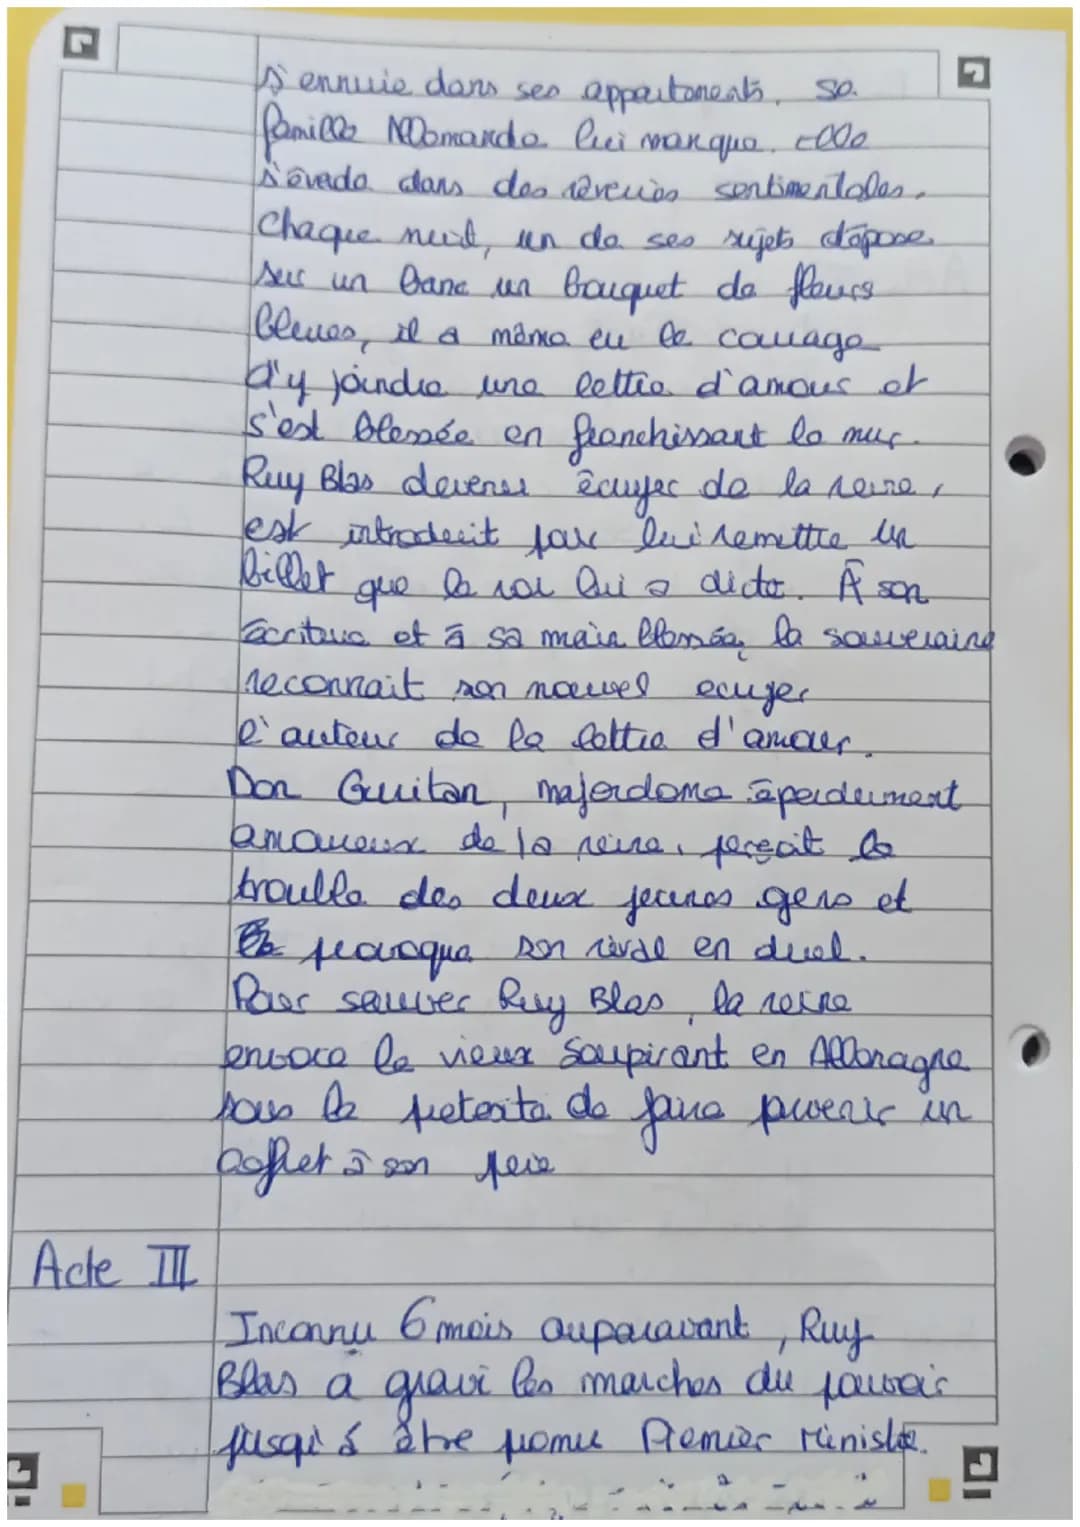 s'ennuie dans ses appartements, sa
famille Allemande lui manque. Elle
s'évade dans des rêveries sentimentales.
Chaque nuit, un de ses sujets dépose
sur un banc un bouquet de fleurs
bleues, il a même eu le courage
d'y joindre une lettre d'amour et
s'est blessée en franchissant le mur.
Ruy Blas devenu écuyer de la reine,
est introduit pour lui remettre un
billet que le roi lui a dicté. À son
écriture et à sa main blessée, la souveraine
reconnait son nouvel ecuyer
l'auteur de la lettre d'amour.
Don Guritan, majordome éperdument
amoureux de la reine, perçoit le
trouble des deux jeunes gens et
provoque son rival en duel.
Pour sauver Ruy Blas, la reine
envoie le vieux soupirant en Allemagne
sous le pretexte de faire parvenir un
coffret à son père
Acte III
Inconnu 6 mois auparavant, Ruy
Blas a gravi les marches du pouvoir
jusqu'à être promu Premier Ministre.